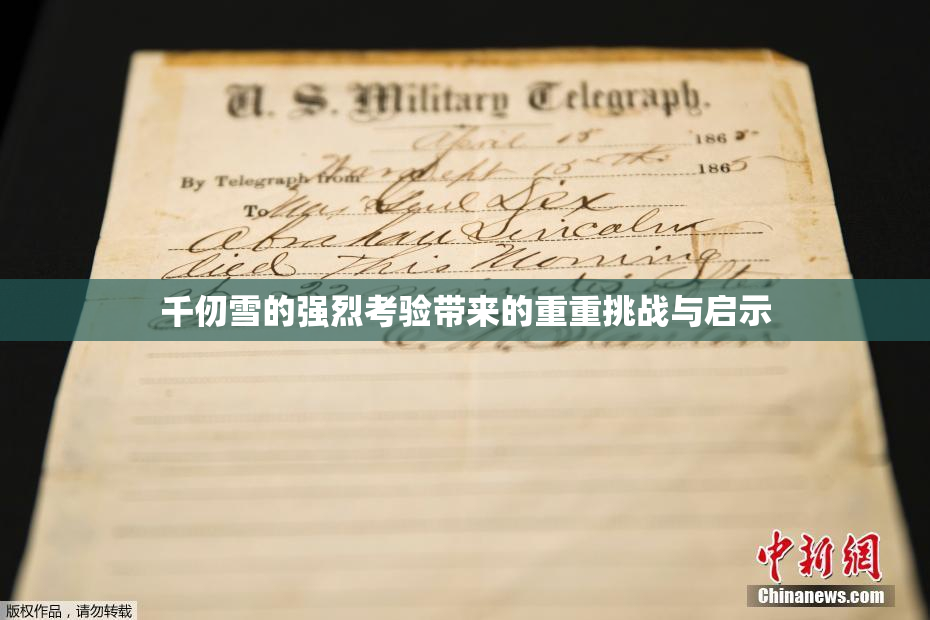 U. S. Military Telegraph.
April 15 1865
By Telegraph from War Dept 15th 1865
To Maj Genl Dix
Abraham Lincoln
died This Morning
at 22 minutes after
千仞雪的强烈考验带来的重重挑战与启示
E. M. Stanton
中新網
Chinanews.com
版权作品，请勿转载